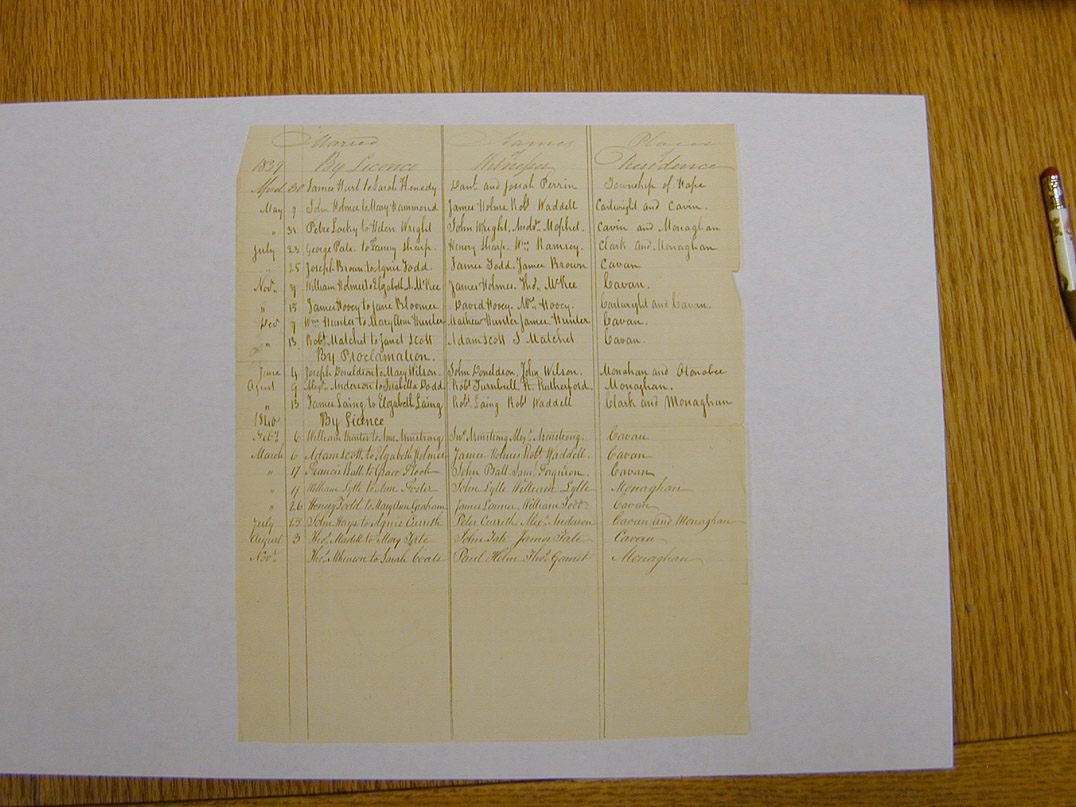 Maried Names Places
1839 By Licence of Witnesses Residence
April 30 James Hart to Sarah Henedy Danl and Josiah Perrin Township of Hope
May 7 John Holmes to Mary Hammond James Holme Robt Waddell Cartwright and Cavin.
" 31 Petre Locky to Helen Wright John Wright, Andw Mophet. Cavin and Monaghan
July 23 George Pate to Fanny Sharp. Henery Sharp. Wm Ramsey. Clark and Monaghan
" 25 Joseph Brown to Agnes Todd. James Todd. James Brown Cavan
Novr 7 William Holmes to Elizabeth McKee James Holmes. Thos McKee Cavan.
" 15 James Hooey to Jane Bloomer David Hooey. Wm Hooey. Cartwright and Cavan.
Decr 9 Wm Hunter to Mary Ann Hunter Mathew Hunter James Hunter Cavan.
" 13 Robt Matchet to Janet Scott Adam Scott J Matchet Cavan.
By Proclamation.
June 4 Joseph Donaldson to Mary Wilson. John Donaldson, John Wilson. Monahan and Otonabee
Agust 9 Alexr Anderson to Isabella Dodd Robt Turnbull R. Rutherford. Monaghan.
" 13 James Laing to Elizabeth Laing Robt Laing Robt Waddell Clark and Monaghan
1840 By Licence
Feby 6 William Hunter to Ann Armstrong Jno Armstrong Alexr Armstrong. Cavan
March 6 Adam Scott to Elizabeth Holmes James Holmes Robt Waddell. Cavan
" 17 Francis Ball to Grace John Ball Saml Ferguson. Cavan
" 17 William Lytle to Ann Foster John Lytle William Lytle Monaghan
" 26 Henery Todd to Mary Ann Graham James William Todd Cavan
July 23 John Hays to Agnes Curreth Peter Curreth Alexr Anderson Cavan and Monaghan
August 3 Thos to Mary Tate John Tate James Tate Cavan
Novr Thos to Sarah Coats Paul Holm Thos Monaghan